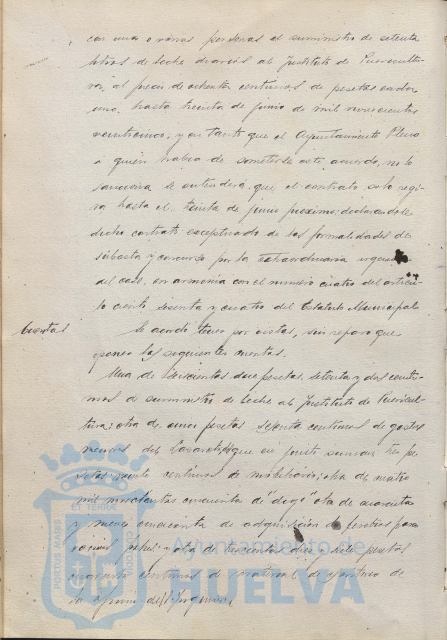 con una o varias personas el suministro de setenta
litros de leche diarios al Instituto de Puericultu-
ra, al precio de ochenta centimos de pesetas cada
uno, hasta treinta de junio de mil novecientos
veinticinco, y en tanto que el Ayuntamiento Pleno
a quien habia de someterse este acuerdo, no lo
sancione se entenderá que el contrato solo regi-
rá hasta el treinta de junio proximo; declarandole
dicho contrato exceptuado de las formalidades de
subasta y concurso por la extraordinaria urgencia
del caso, en armonia con el numero cuatro del articu-
lo ciento sesenta y cuatro del Estatuto Municipal.
Cuentas
Se acordó tener por vistas, sin reparo que
oponer las siguientes cuentas.
Una de seiscientas doce pesetas, setenta y dos centi-
mos de suministro de leche al Instituto de Puericul-
tura; otra de cinco pesetas setenta centimos de gastos
menores del que en junto suman tres pe-
setas veinte centimos de mobiliario; otra de cuatro
mil cincuenta de otra de cuarenta
y nueve cincuenta de adquisición de para
varios y otra de trescientas diez y siete pesetas
cuarenta centimos de material de de
la
PORTUS MARIS ET TERRAE CUSTODIA
Ayuntamiento de
HUELVA